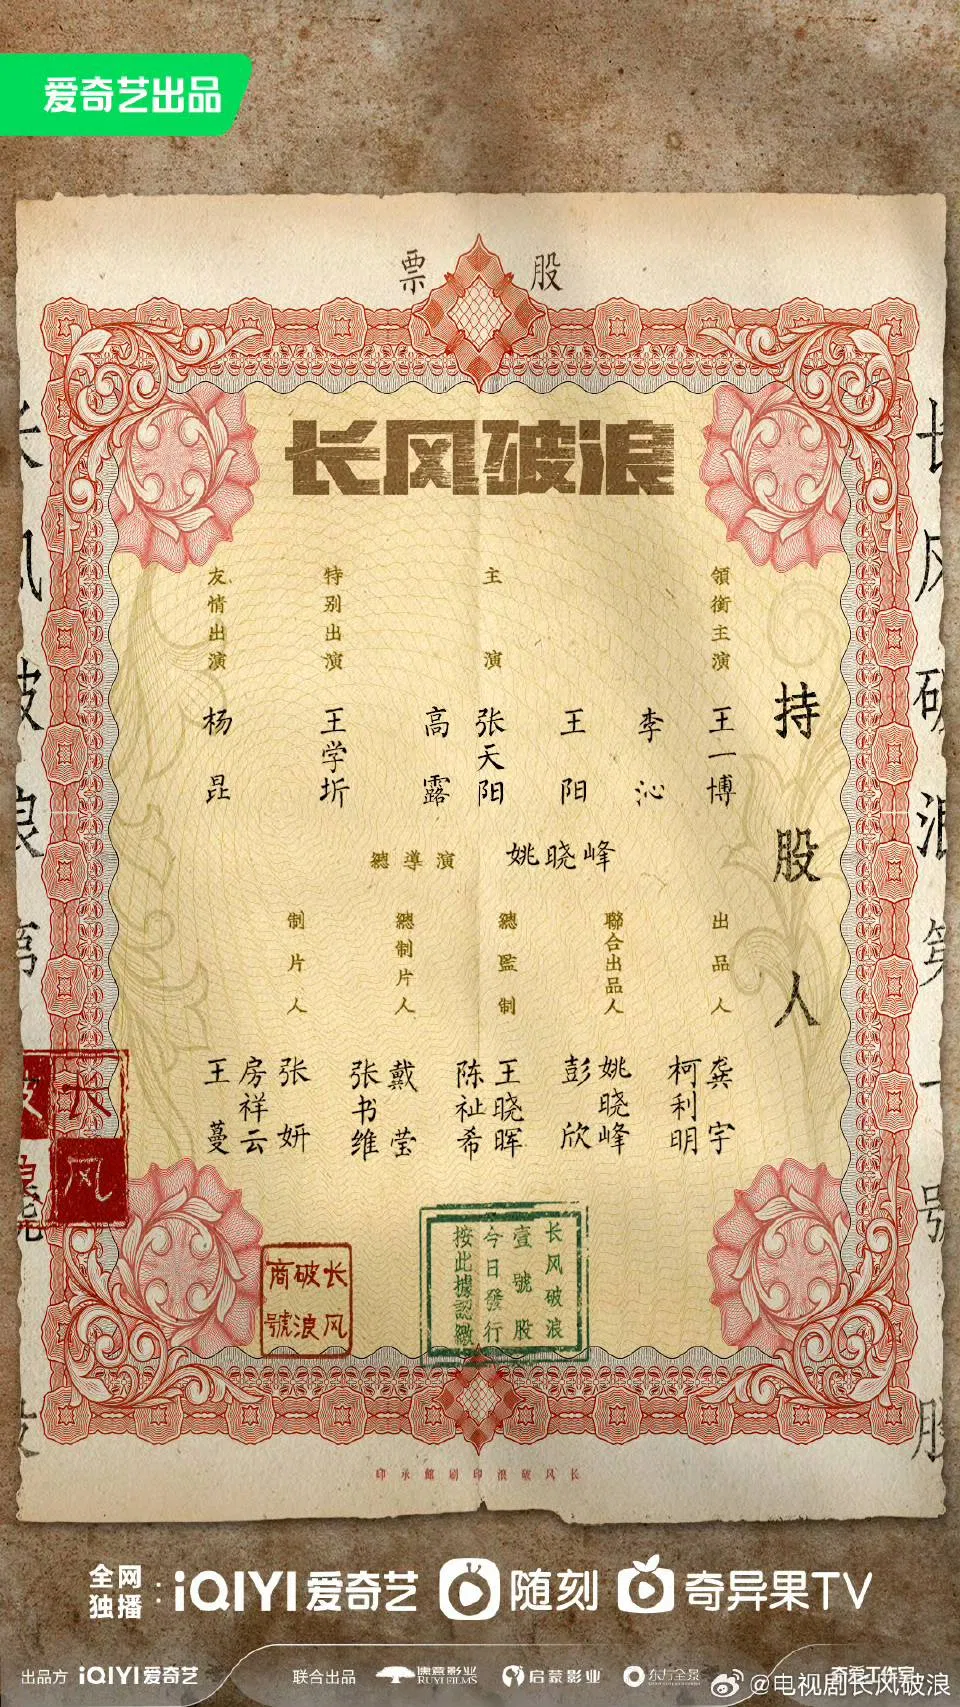 爱奇艺出品
股票
长风破浪
领衔主演
王一博
李沁
主演
王阳
张天阳
高露
特别出演
王学圻
友情出演
杨昆
持股人
總導演 姚晓峰
出品人
龚宇
柯利明
聯合出品人
姚晓峰
彭欣
總監制
王晓晖
陈祉希
總制片人
戴莹
张书维
制片人
张妍
房祥云
王蔓
长风破浪
壹號股
今日發行
按此據認繳
长风
破浪
商號
长风
长风破浪第一號股
长风破浪印刷館承印
全网独播：iQIYI爱奇艺 随刻 奇异果TV
出品方 iQIYI爱奇艺 联合出品 儒意影业 RUYI FILMS 启蒙影业 东方全景
@电视剧长风破浪